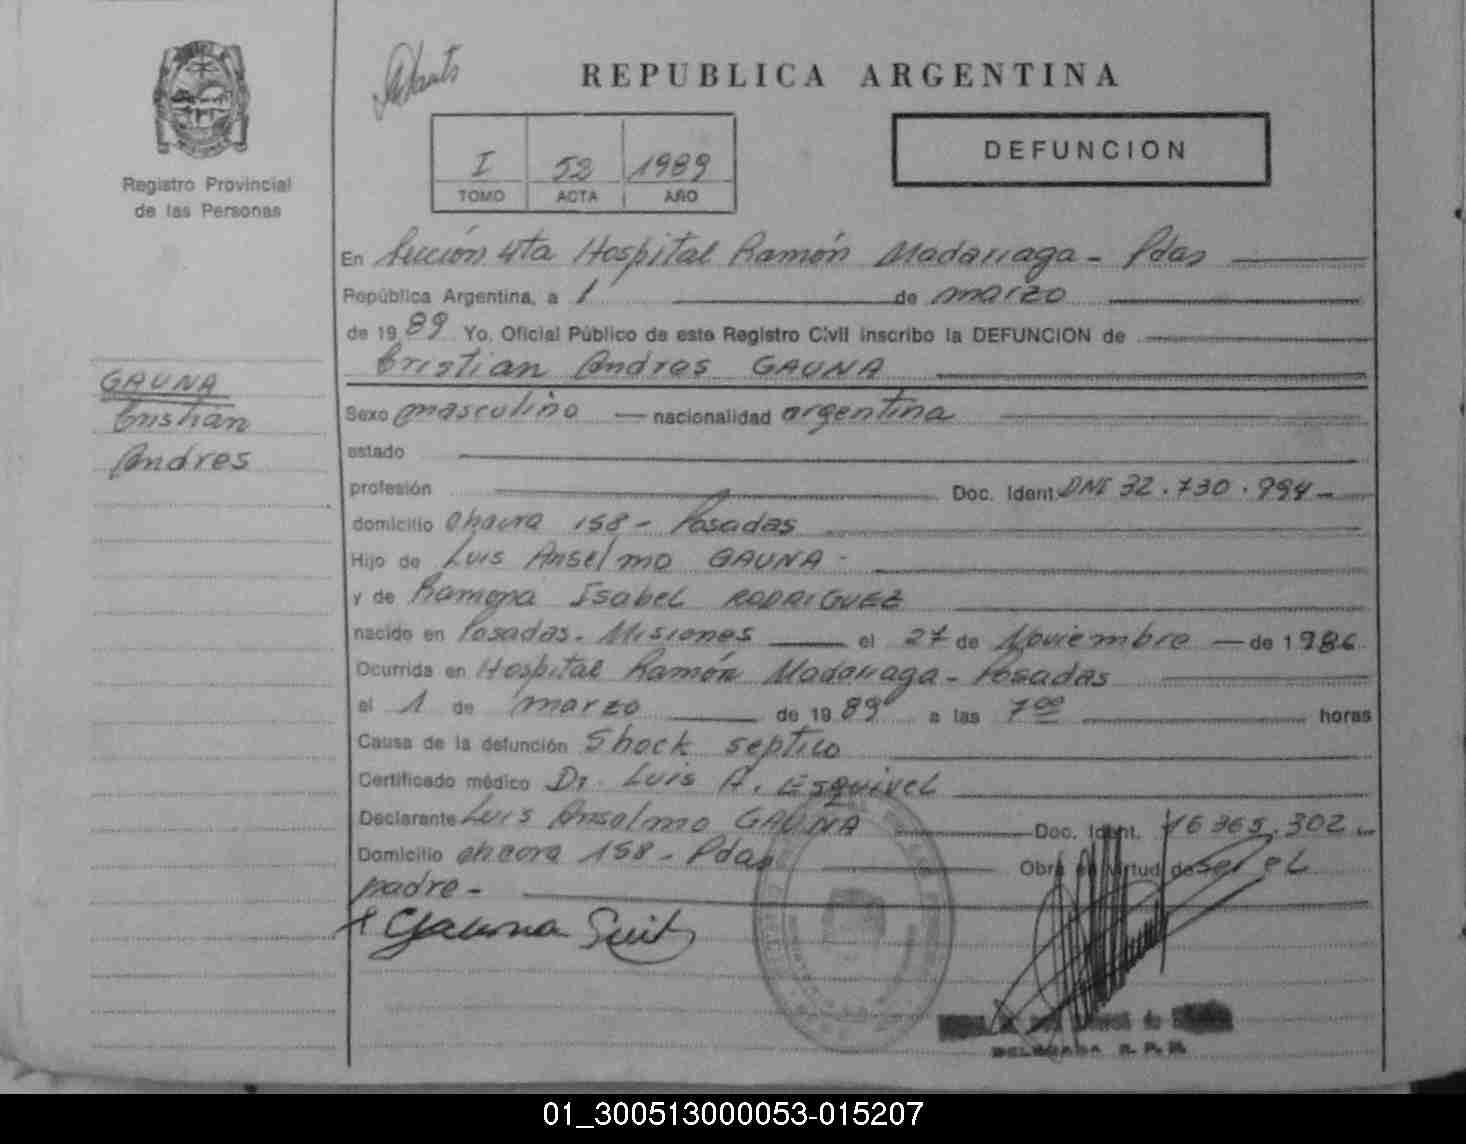 REPUBLICA ARGENTINA
Registro Provincial
de las Personas
I 52 1989
TOMO ACTA AÑO
DEFUNCION
GAUNA
Cristian
Andres
En Sección 4ta Hospital Ramón Madariaga - Pdas
República Argentina, a 1 de marzo
de 1989 Yo, Oficial Público de este Registro Civil inscribo la DEFUNCION de
Cristian Andres GAUNA
Sexo masculino nacionalidad argentina
estado
profesión Doc. Ident. DNI 32.730.994
domicilio chacra 158 - Posadas
Hijo de Luis Anselmo GAUNA
y de Ramona Isabel RODRIGUEZ
nacido en Posadas. Misiones el 27 de Noviembre de 1986
Ocurrida en Hospital Ramón Madariaga - Posadas
el 1 de marzo de 1989 a las 7 00 horas
Causa de la defunción Shock septico
Certificado médico Dr. Luis A. Esquivel
Declarante Luis Anselmo GAUNA Doc. Ident. 16 365.302
Domicilio chacra 158 - Pdas Obra en virtud de ser el
padre -
Gauna Luis
DELEGADA R. P. P.
01_300513000053-015207